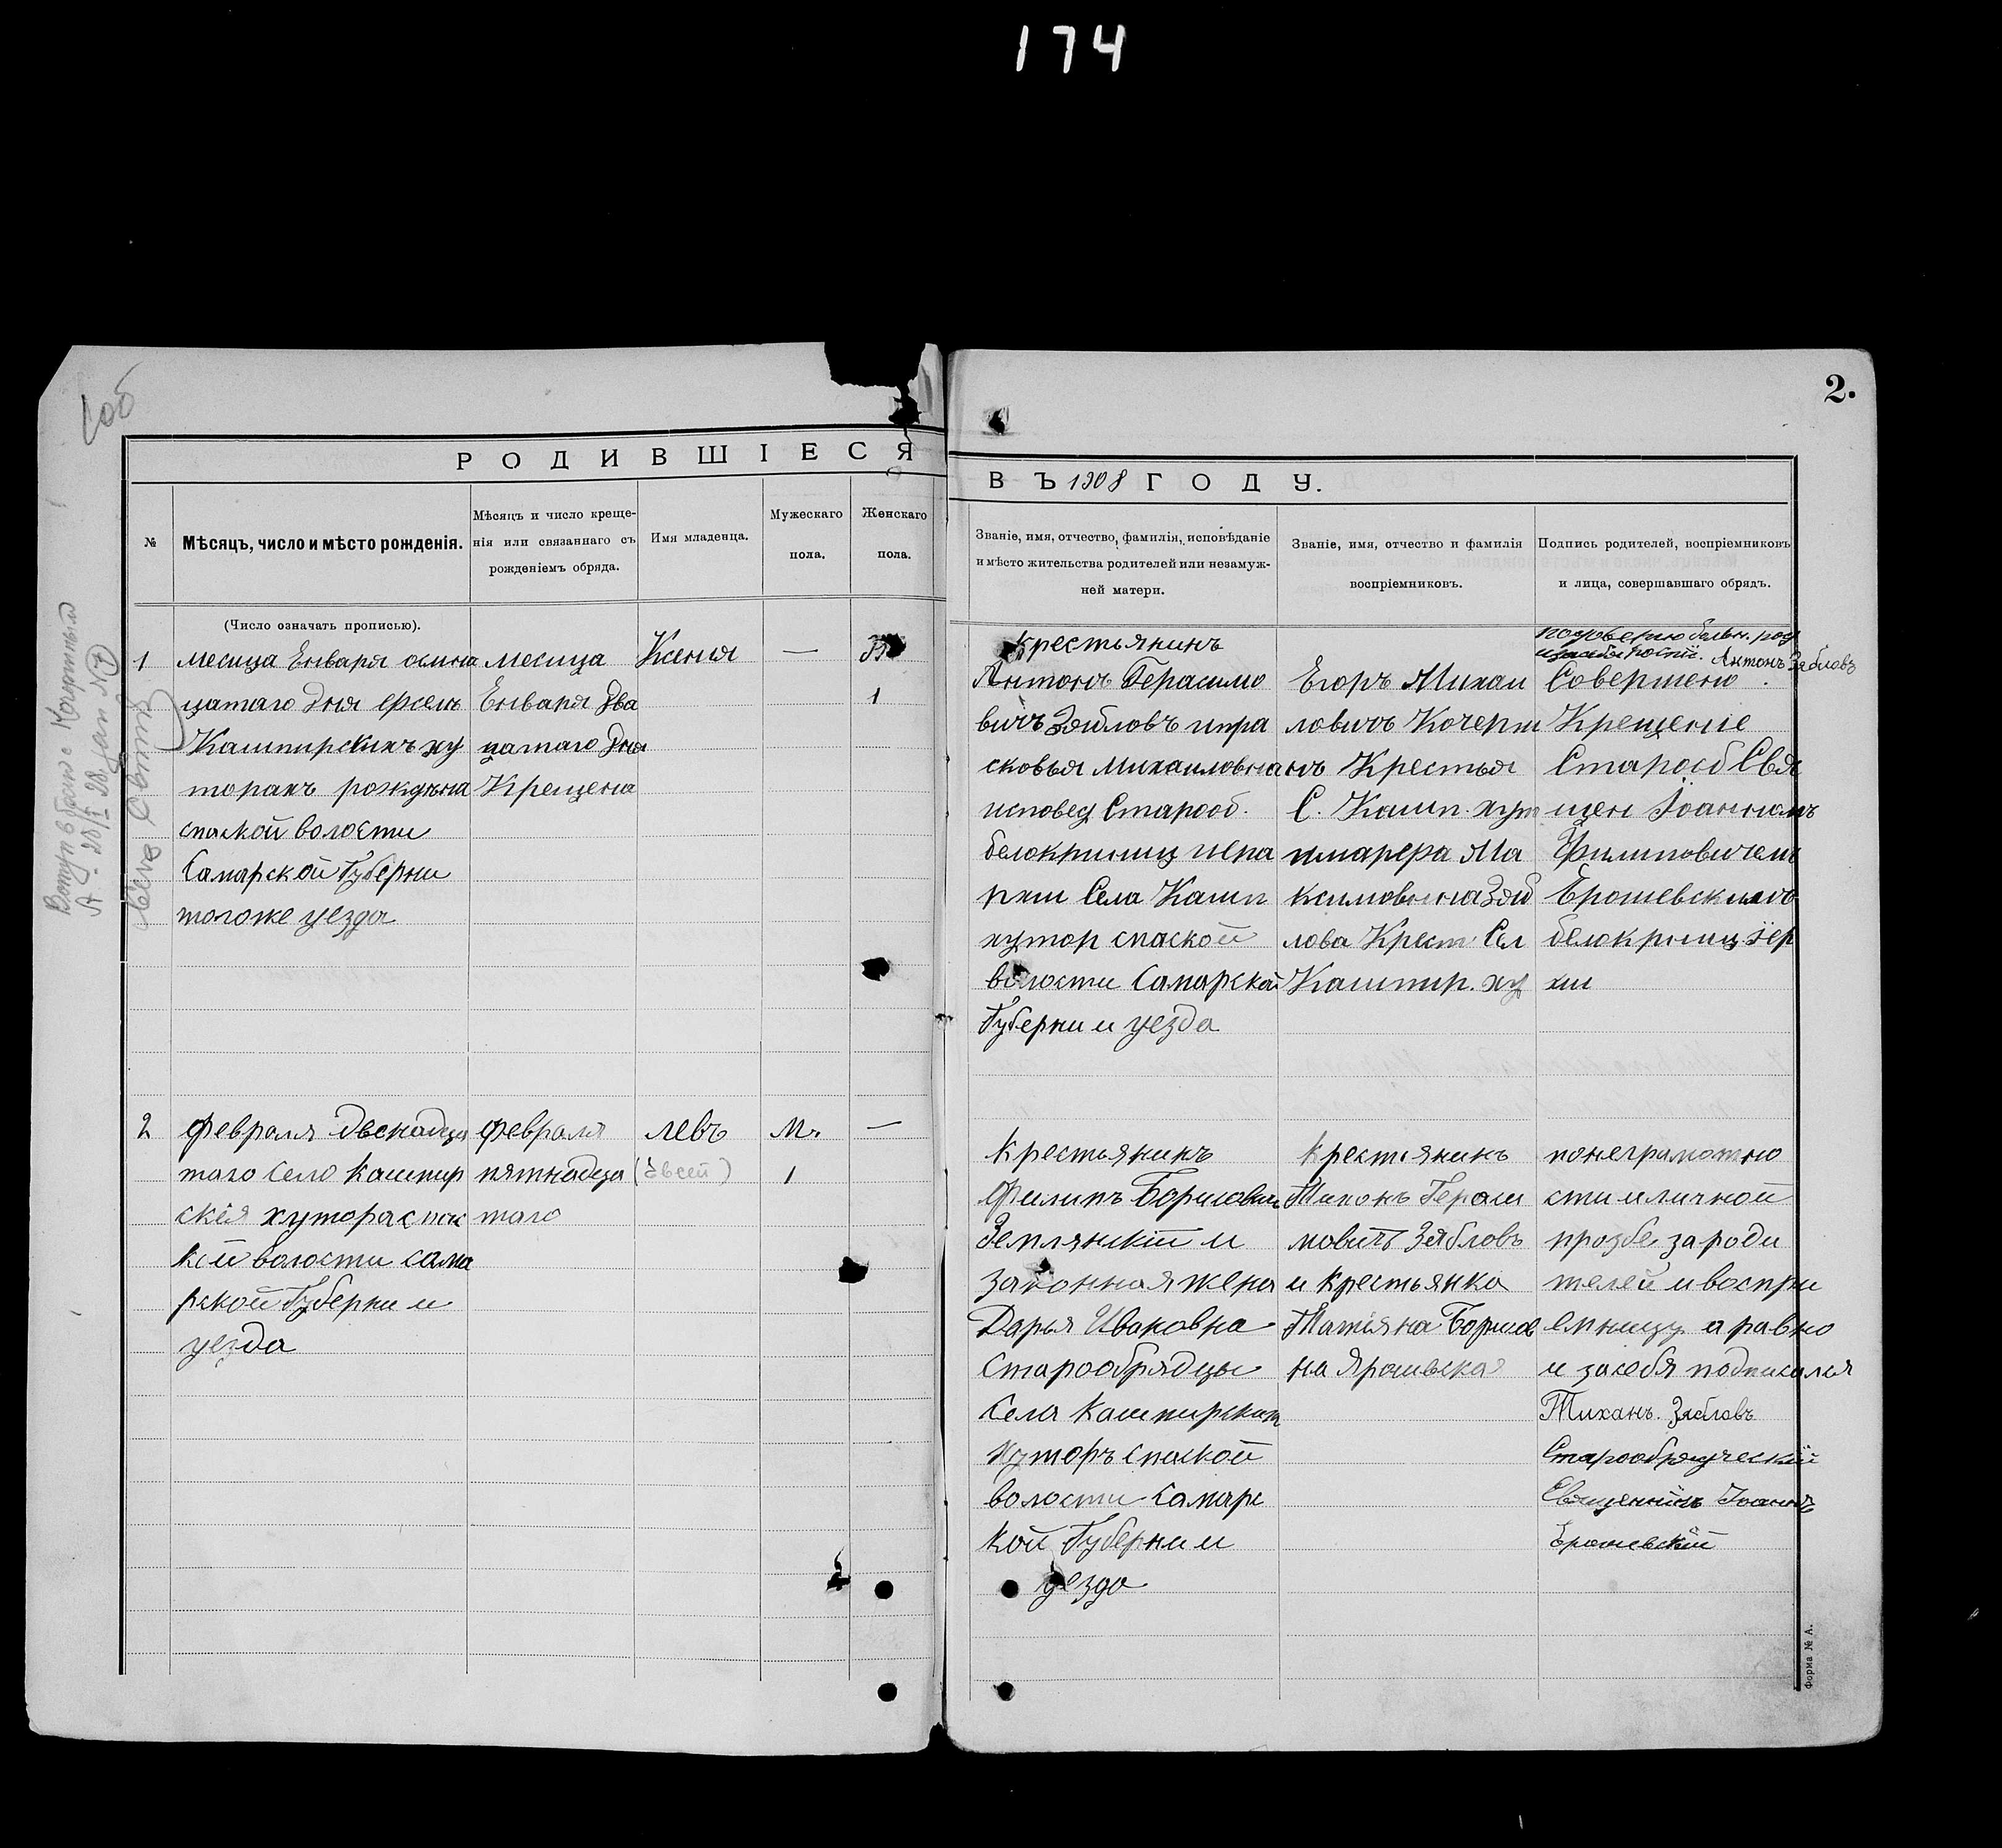 174
2.
РОДИВШІЕСЯ
ВЪ 1908 ГОДУ.
№
Мѣсяцъ, число и мѣсто рожденія.
Мѣсяцъ и число креще-
нія или связаннаго съ
рожденіемъ обряда.
Имя младенца.
Мужескаго
пола.
Женскаго
пола.
Званіе, имя, отчество, фамилія, исповѣданіе
и мѣсто жительства родителей или незамуж-
ней матери.
Званіе, имя, отчество и фамилія
воспріемниковъ.
Подпись родителей, воспріемниковъ
и лица, совершавшаго обрядъ.
(Число означать прописью).
1
месяца Енваря осмна
цатаго дня
Кашпирскихъ ху
торахъ рождена
спаской волости
Самарской Губерни
тогоже уезда
месяца
Енваря два
цатаго дня
Крещена
Ксения
—
1
Крестьянинъ
Антонъ Герасимо
вичъ Зябловъ ипра
сковья Михаиловна
исповед Старооб.
белокриниц иера
рхии Села Кашп
хутор спаской
волости Самарской
Губерни и уезда
Егоръ Михаи
ловичъ Кочерги
нъ Крестья
С. Кашп. хут
Ма
ксимовнна Зяб
лова Крест Сел
Кашпир. ху
Антонъ Зябловъ
Совершено
Крещение
Староб Свя
щен Іоанномъ
Филиповичемъ
Ерошевскимъ
белокриниц іер
хии
2
февраля двенадца
таго село Кашпир
скія хутора спас
кой волости сама
рской Губерни и
уезда
февраля
пятнадца
таго
левъ
м.
1
—
Крестьянинъ
Филипъ Борисович
Землянскій и
законная жена
Дарья Ивановна
Старообрядцы
Села Кашпирских
Хуторъ спаской
волости Самарс
кой Губерни и
уезда
крестьянинъ
Тихонъ Гераси
мовичъ Зябловъ
и крестьянка
Татіяна Борисов
на Ярошевская
понеграмотно
сти иличной
прозбе зароди
телей ивоспри
емницу а равно
и засебя подписался
Тиханъ. Зябловъ
Старообрядческій
Священникъ Іоаннъ
Ерошевскій
Форма № А.